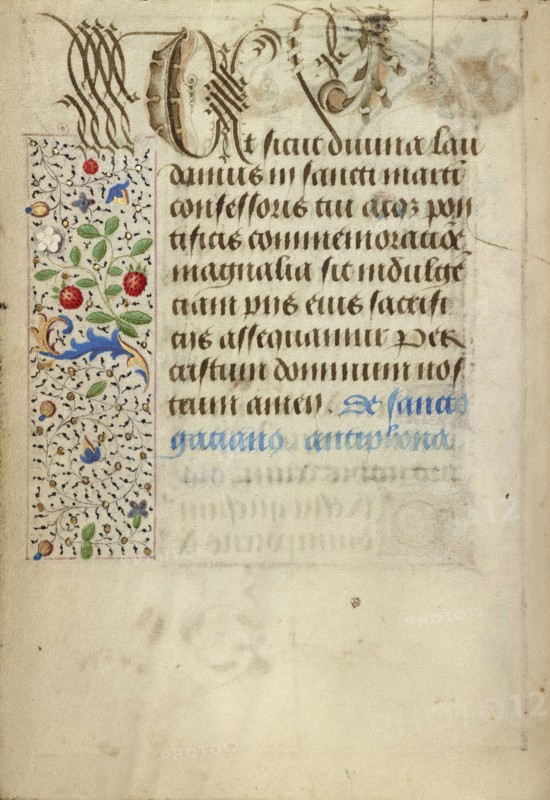 Ut sicut divina lau
damus in sancti marti
confessoris tui atqz pon
tificis commemoratiõe
magnalia sic indulgẽ
tiam piis eius
assequamur Per
cristum dominum nos
trum amen. De sancto
gatiano. antiphona.
PHOTO12